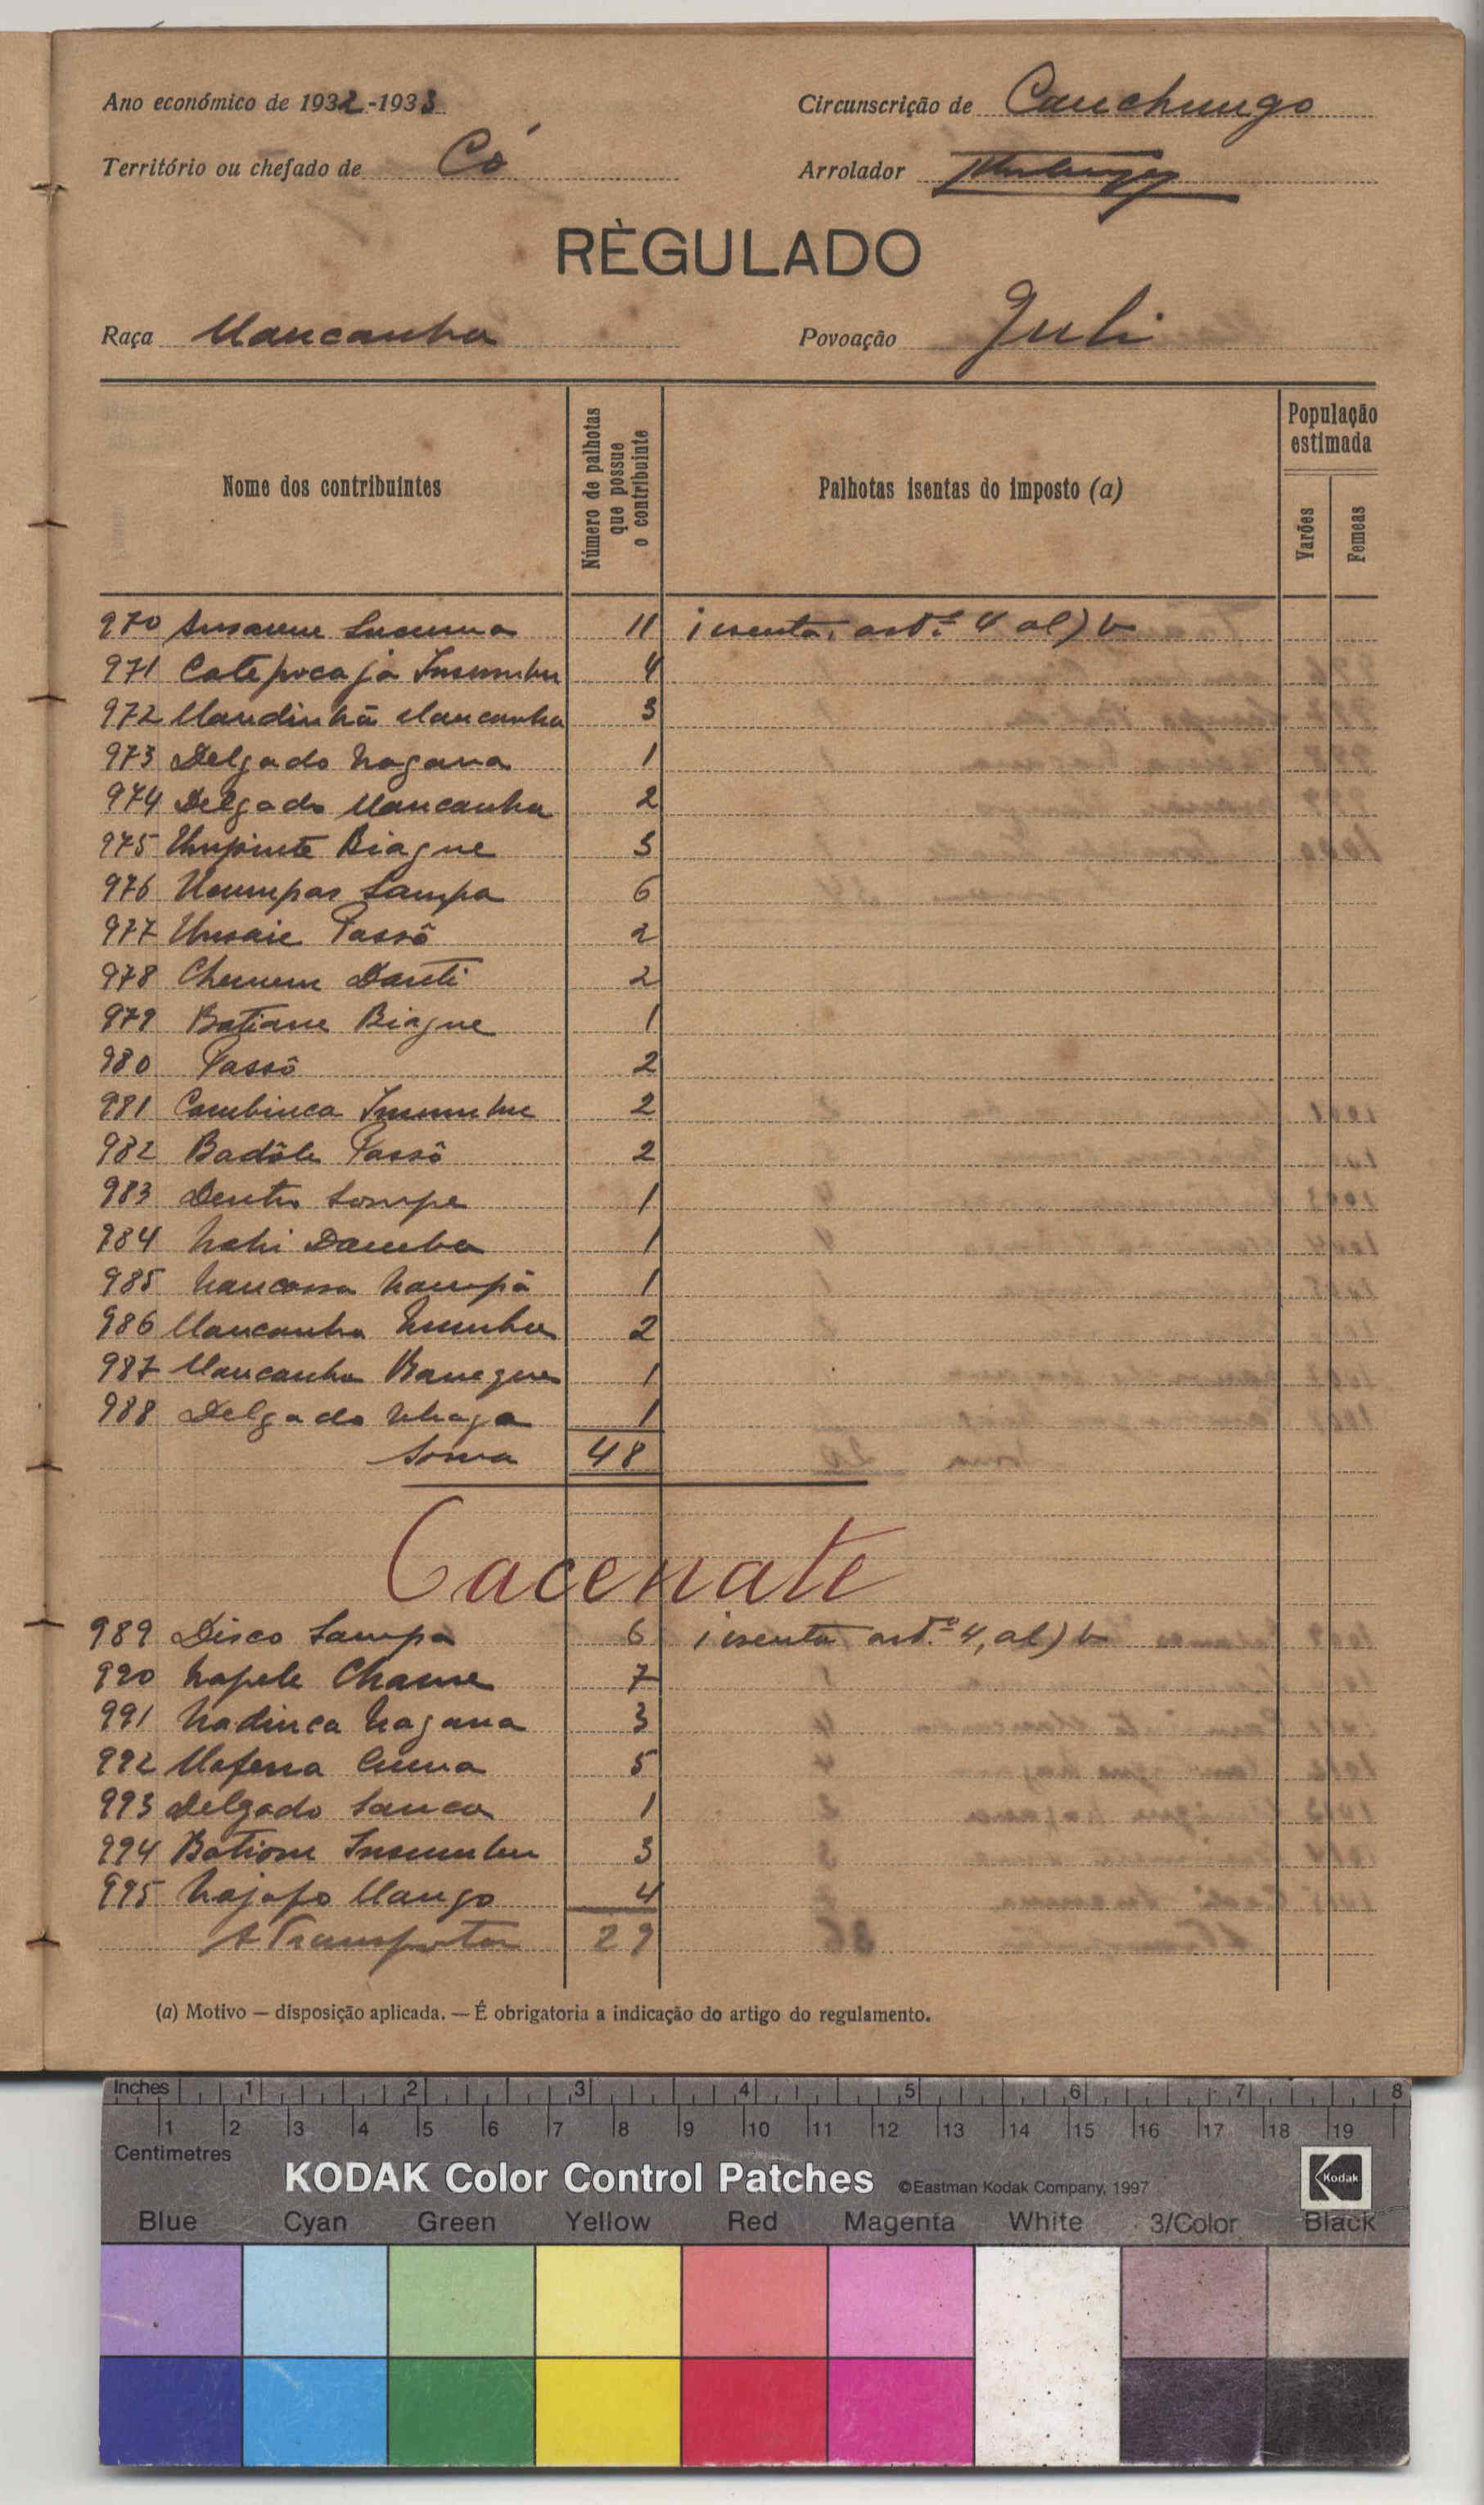 Ano económico de 1932-1933 Circunscrição de Cauchungo
Território ou chefado de Có Arrolador
RÈGULADO
Raça Mancanha Povoação Juli
Nome dos contribuintes
Número de palhotas que possue o contribuinte
Palhotas isentas do imposto (a)
População estimada
Varões
Femeas
970 11 isenta, art.º 4 al) b
971 4
972 Mandinhã Mancanha 3
973 Delgado Nagana 1
974 Delgado Mancanha 2
975 Biague 3
976 Sampa 6
977 Passô 2
978 Danti 2
979 Batiane Biague 1
980 Passô 2
981 Combinca 2
982 Badôle Passô 2
983 Dentro Sompe 1
984 1
985 1
986 Mancanha 2
987 Mancanha 1
988 Delgado 1
Soma 48
Cacenate
989 Disco Sampa 6 isenta art.º 4, al) b
990 Napele Chame 7
991 Nadinca Nagana 3
992 5
993 Delgado Sanca 1
994 3
995 Najafo Mango 4
A Transportar 29
(a) Motivo — disposição aplicada. — É obrigatoria a indicação do artigo do regulamento.
Inches 1 2 3 4 5 6 7 8
1 2 3 4 5 6 7 8 9 10 11 12 13 14 15 16 17 18 19
Centimetres
KODAK Color Control Patches ©Eastman Kodak Company, 1997 Kodak
Blue Cyan Green Yellow Red Magenta White 3/Color Black